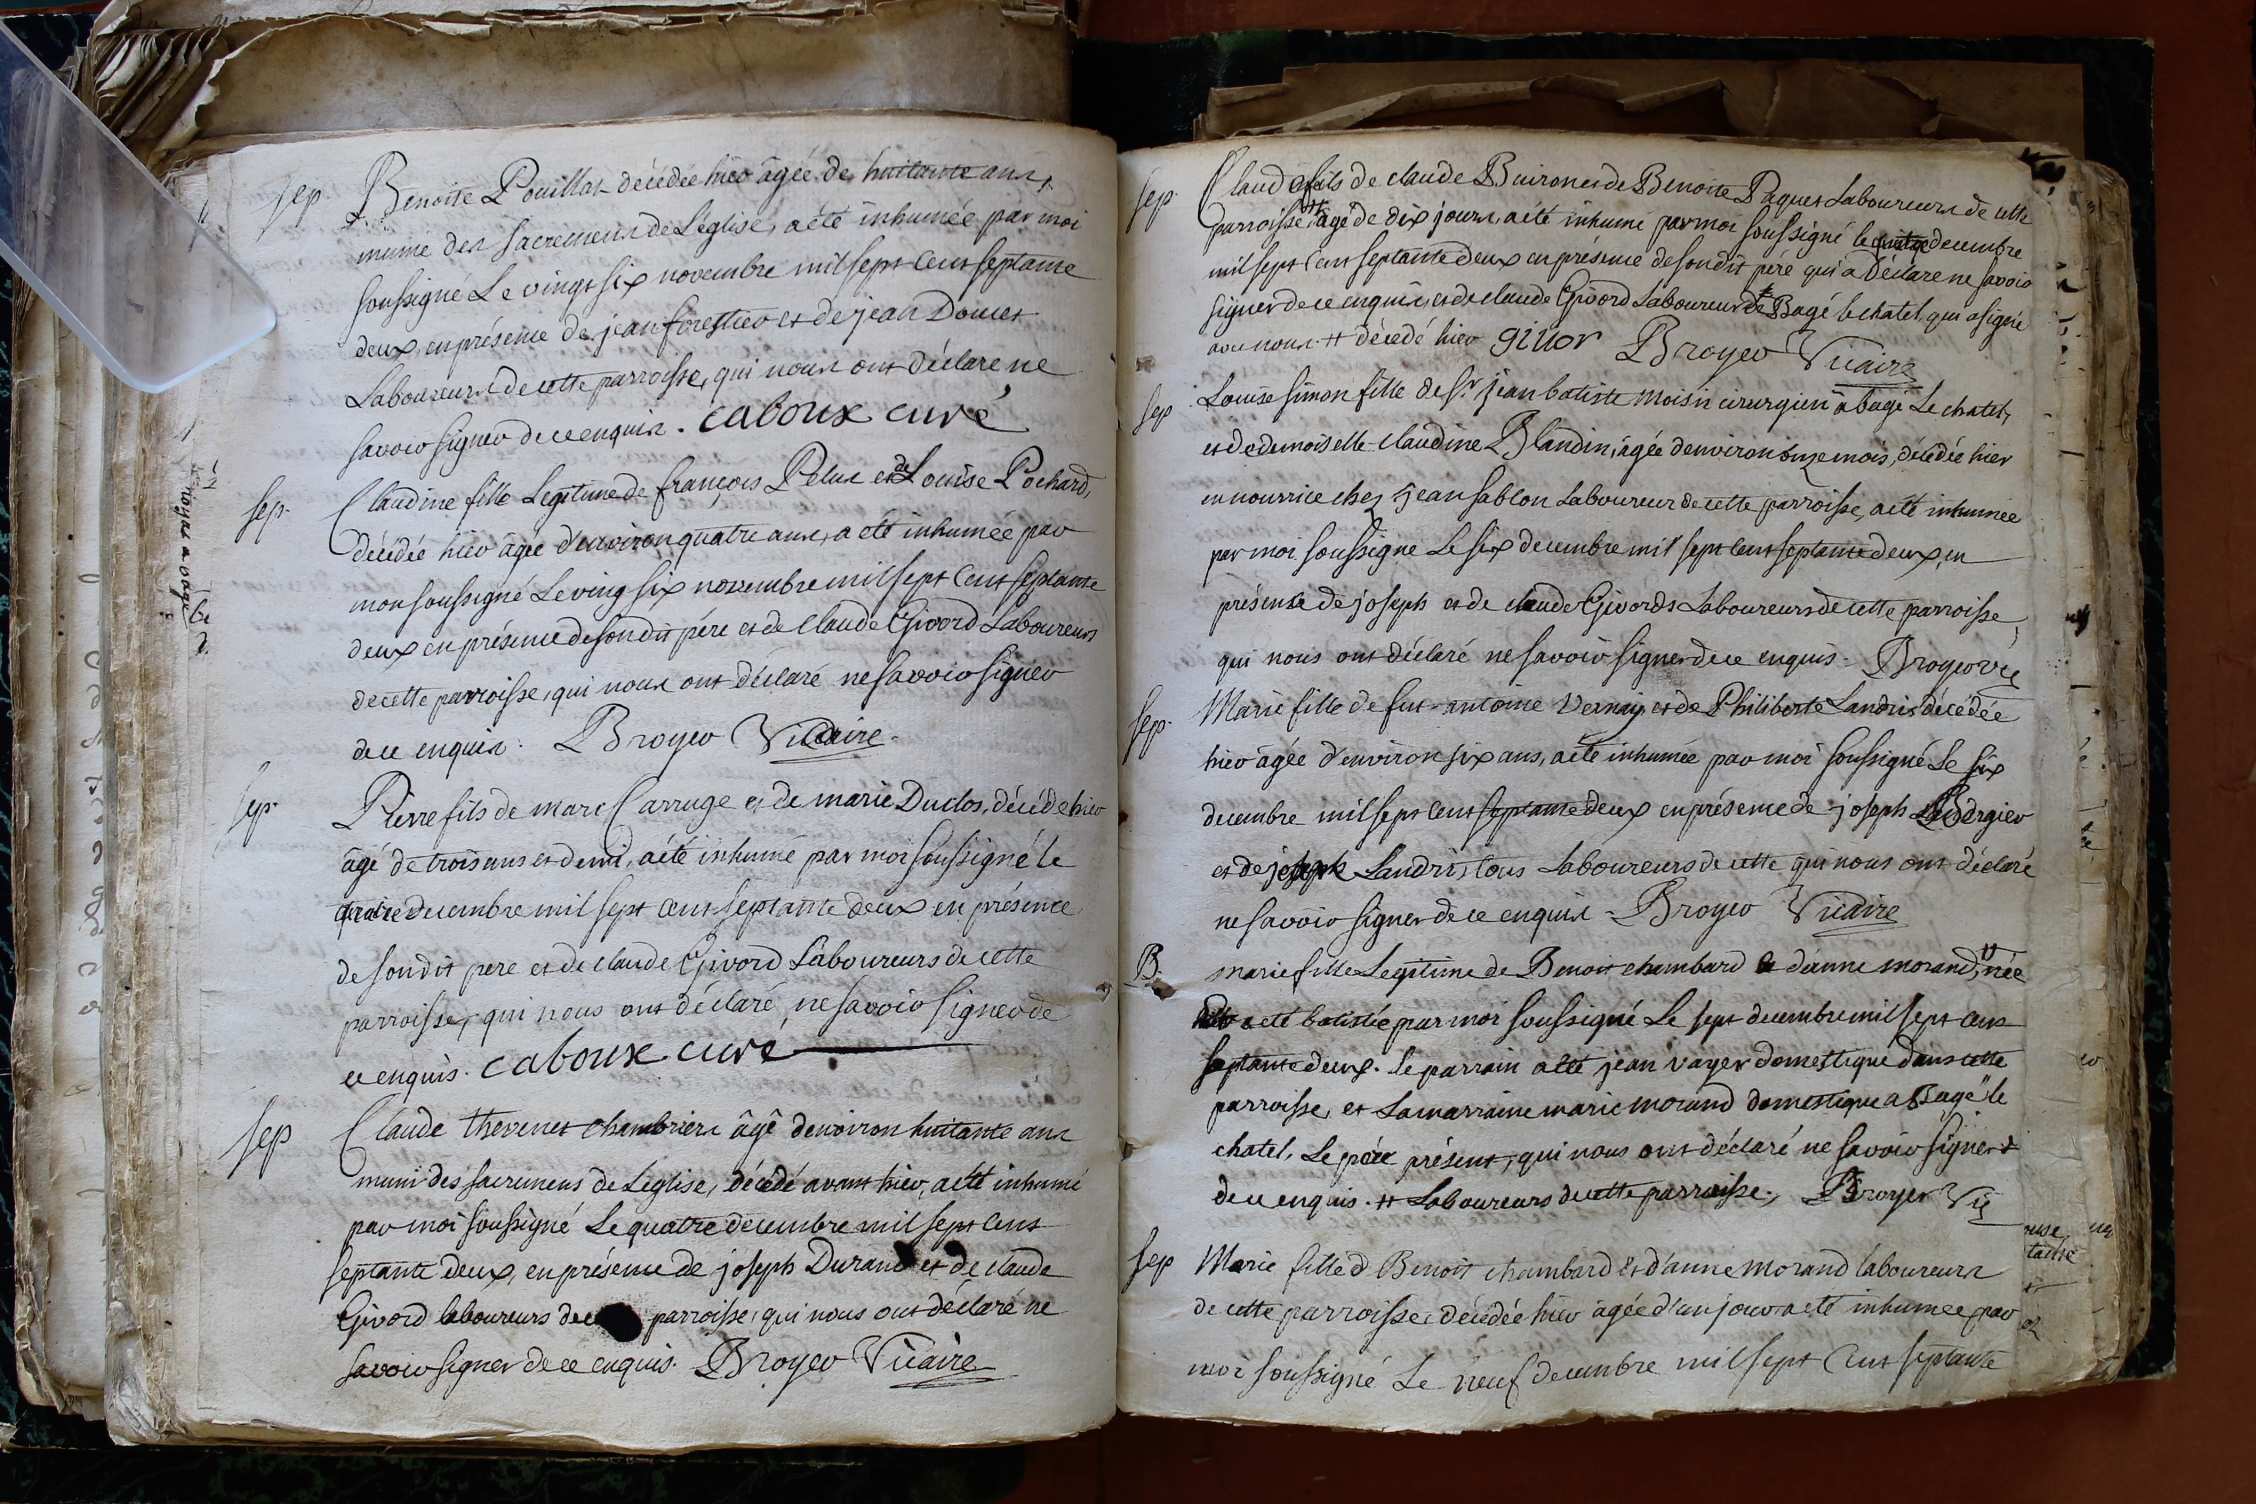 sep Benoite Pouillat décédée hier âgée de huitante ans,
munie des sacremens de Léglise, a été inhumée par moi
soussigné Le vingt six novembre mil sept cent septante
deux, en présence de jean forestier et de jean Doucet
Laboureurs de cette parroisse, qui nous ont déclaré ne
savoir signer de ce enquis. caboux curé
sep. Claudine fille Legitime de françois Pelus et de Louise Pochard,
décédée hier âgée d'environ quatre ans, a été inhumée par
moi soussigné Le ving six novembre mil sept cent septante
deux en présence de son dit pére et de Claude Givord Laboureurs
de cette parroisse, qui nous ont déclaré ne savoir signer
de ce enquis. Broyer Vicaire
sep. Pierre fils de marc Carruge et de marie Duclos, décédé hier
âgé de trois ans et demi, a été inhumé par moi soussigné le
quatre decembre mil sept cent septante deux en présence
de son dit pere et de claude Givord Laboureurs de cette
parroisse, qui nous ont déclaré ne savoir signer de
ce enquis. caboux curé
sep Claude thevenet chambrier âgé denviron huitante ans
muni des sacremens de Léglise, décédé avant hier, a été inhumé
par moi soussigné Le quatre decembre mil sept cent
septante deux, en présence de joseph Durand et de claude
Givord laboureurs de parroisse, qui nous ont déclaré ne
savoir signer de ce enquis. Broyer Vicaire
sep. Claude fils de claude Buiron et de Benoite Paquet Laboureurs de cette
parroisse, # agé de dix jours, a été inhumé par moi soussigné le quatre decembre
mil sept cent septante deux en présence de son dit pére qui a déclaré ne savoir
signer de ce enquis, et de claude Givord Laboureur de Bagé le chatel qui a signé
avec nous. # décédé hier givor Broyer Vicaire
sep. Louise simon fille de Sr. jean batiste moisin cirurgien a bagé Le chatel,
et de demoiselle Claudine Blandin, âgée denviron onze mois, décédée hier
en nourrice chez jean sablon Laboureur de cette parroisse, a été inhumée
par moi soussigné Le six decembre mil sept cent septante deux, en
présence de joseph et de claude Givords Laboureurs de cette parroisse,
qui nous ont déclaré ne savoir signer de ce enquis. Broyer vic
sep. Marie fille de fut antoine Vernay et de Philiberte Landris décédée
hier âgée d'environ six ans, a été inhumée par moi soussigné Le six
decembre mil sept cent septante deux en présence de joseph Bergier
et de joseph Landris, tous Laboureurs de cette qui nous ont déclaré
ne savoir signer de ce enquis. Broyer Vicaire
B. marie fille Legitime de Benoit chambard et d'anne morand, # née
hier a eté batisée par moi soussigné Le sept decembre mil sept cent
septante deux. Le parrain a été jean vayer domestique dans cette
parroisse, et La marraine marie morand domestique a Bagé le
chatel, Le pére présent, qui nous ont déclaré ne savoir signer
de ce enquis. # Laboureurs de cette parroisse. Broyer Vic
sep Marie fille d Benoit chambard et d'anne morand laboureurs
de cette parroisse, décédée hier âgée d'un jour a eté inhumée par
moi soussigné Le neuf decembre mil sept cent septante